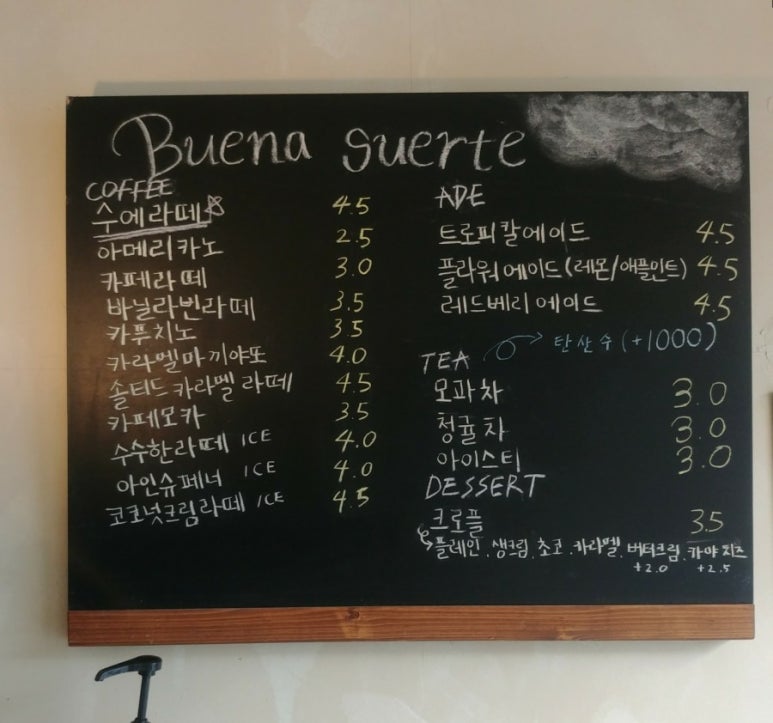 Buena suerte
COFFEE
수에라떼 4.5
아메리카노 2.5
카페라떼 3.0
바닐라빈라떼 3.5
카푸치노 3.5
카라멜마끼야또 4.0
솔티드카라멜라떼 4.5
카페모카 3.5
수수한라떼 ICE 4.0
아인슈페너 ICE 4.0
코코넛크림라떼 ICE 4.5
ADE
트로피칼에이드 4.5
플라워에이드(레몬/애플민트) 4.5
레드베리에이드 4.5
탄산수(+1000)
TEA
모과차 3.0
청귤차 3.0
아이스티 3.0
DESSERT
크로플 3.5
플레인.생크림.초코.카라멜.버터크림.카야치즈
+2.0 +2.5